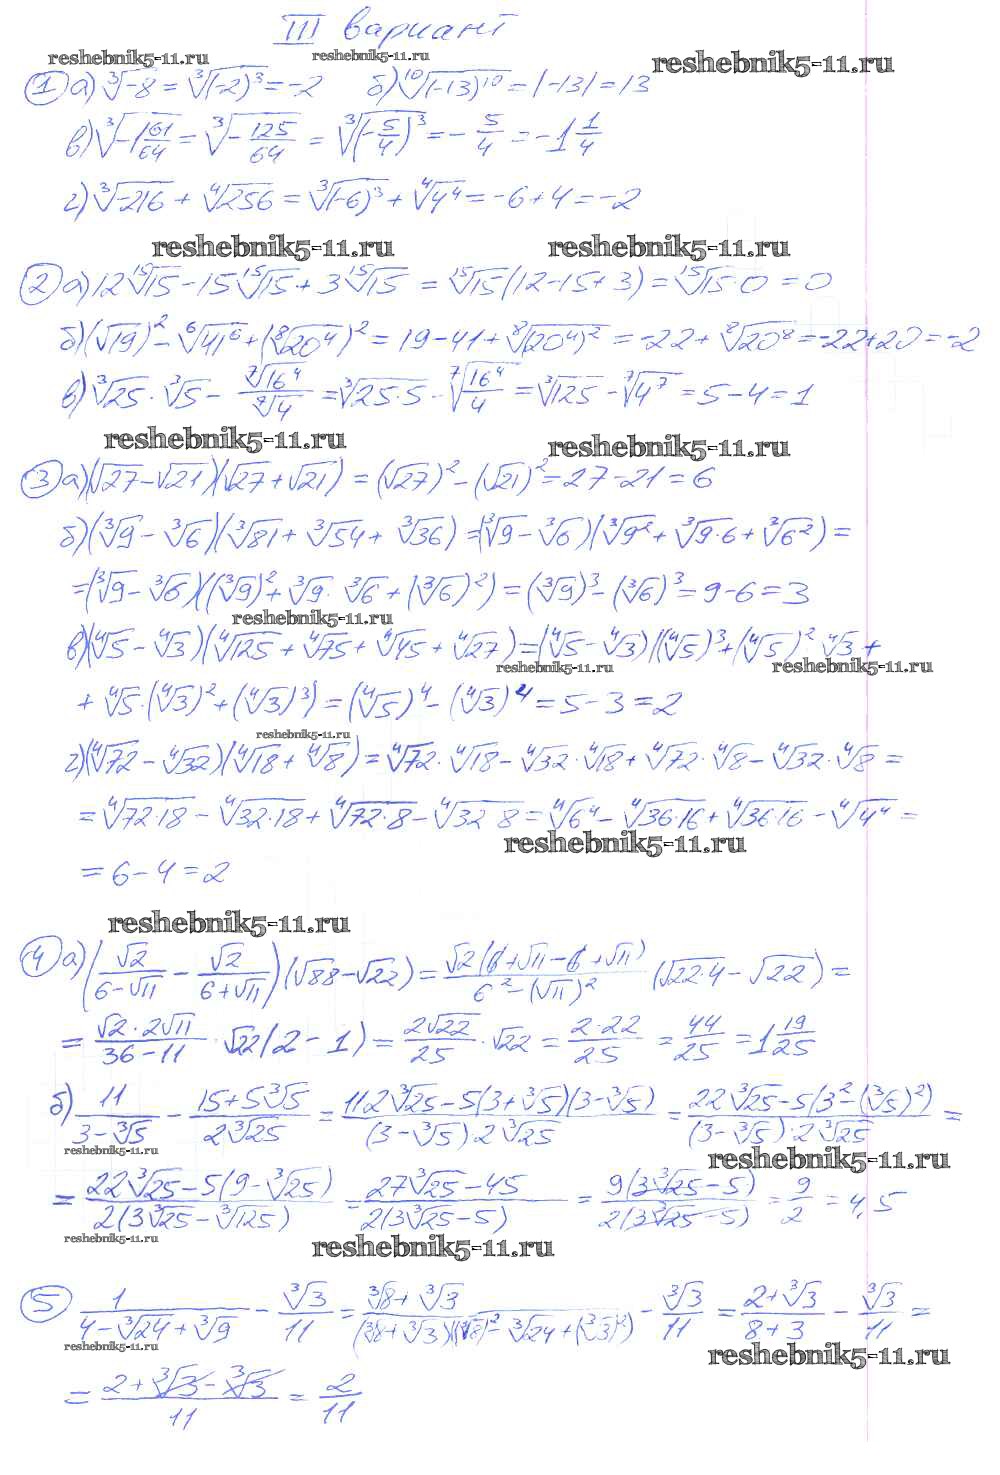 III вариант
reshebnik5-11.ru reshebnik5-11.ru reshebnik5-11.ru
① а) ∛-8 = ∛(-2)³ = -2 б) ¹⁰√(-13)¹⁰ = |-13| = 13
в) ∛-1 61/64 = ∛-125/64 = ∛(-5/4)³ = -5/4 = -1 1/4
г) ∛-216 + ⁴√256 = ∛(-6)³ + ⁴√4⁴ = -6+4 = -2
reshebnik5-11.ru reshebnik5-11.ru
② а) 12 ¹⁵√15 - 15 ¹⁵√15 + 3 ¹⁵√15 = ¹⁵√15 (12-15+3) = ¹⁵√15·0 = 0
б) (√19)² - ⁶√41⁶ + (⁸√20⁴)² = 19-41+ ⁸√(20⁴)² = -22+ ⁸√20⁸ = -22+20 = -2
в) ∛25 · ∛5 - ⁷√16⁴/⁷√4 = ∛25·5 - ⁷√16⁴/4 = ∛125 - ⁷√4⁷ = 5-4 = 1
reshebnik5-11.ru reshebnik5-11.ru
③ а) (√27-√21)(√27+√21) = (√27)² - (√21)² = 27-21 = 6
б) (∛9 - ∛6)(∛81 + ∛54 + ∛36) = (∛9 - ∛6)(∛9² + ∛9·6 + ∛6²) =
= (∛9 - ∛6)((∛9)² + ∛9 · ∛6 + (∛6)²) = (∛9)³ - (∛6)³ = 9-6 = 3
reshebnik5-11.ru
в) (⁴√5 - ⁴√3)(⁴√125 + ⁴√75 + ⁴√45 + ⁴√27) = (⁴√5 - ⁴√3)((⁴√5)³ + (⁴√5)² ⁴√3 +
reshebnik5-11.ru reshebnik5-11.ru
+ ⁴√5 · (⁴√3)² + (⁴√3)³) = (⁴√5)⁴ - (⁴√3)⁴ = 5-3 = 2
reshebnik5-11.ru
г) (⁴√72 - ⁴√32)(⁴√18 + ⁴√8) = ⁴√72 · ⁴√18 - ⁴√32 · ⁴√18 + ⁴√72 · ⁴√8 - ⁴√32 · ⁴√8 =
= ⁴√72·18 - ⁴√32·18 + ⁴√72·8 - ⁴√32 8 = ⁴√6⁴ - ⁴√36·16 + ⁴√36·16 - ⁴√4⁴ =
reshebnik5-11.ru
= 6-4 = 2
reshebnik5-11.ru
④ а) (√2/(6-√11) - √2/(6+√11))(√88-√22) = √2(6+√11-6+√11)/(6²-(√11)²) (√22·4 - √22) =
= √2·2√11/(36-11) · √22(2-1) = 2√22/25 · √22 = 2·22/25 = 44/25 = 1 19/25
б) 11/(3-∛5) - (15+5∛5)/(2∛25) = (11 2∛25 - 5(3+∛5)(3-∛5))/((3-∛5)·2∛25) = (22∛25 - 5(3²-(∛5)²))/((3-∛5)·2∛25) =
reshebnik5-11.ru reshebnik5-11.ru
= (22∛25 - 5(9-∛25))/(2(3∛25-∛125)) = (27∛25-45)/(2(3∛25-5)) = 9(3∛25-5)/(2(3∛25-5)) = 9/2 = 4,5
reshebnik5-11.ru reshebnik5-11.ru
⑤ 1/(4-∛24+∛9) - ∛3/11 = (∛8+∛3)/((∛8+∛3)((∛8)²-∛24+(∛3)²)) - ∛3/11 = (2+∛3)/(8+3) - ∛3/11 =
reshebnik5-11.ru reshebnik5-11.ru
= (2+∛3-∛3)/11 = 2/11